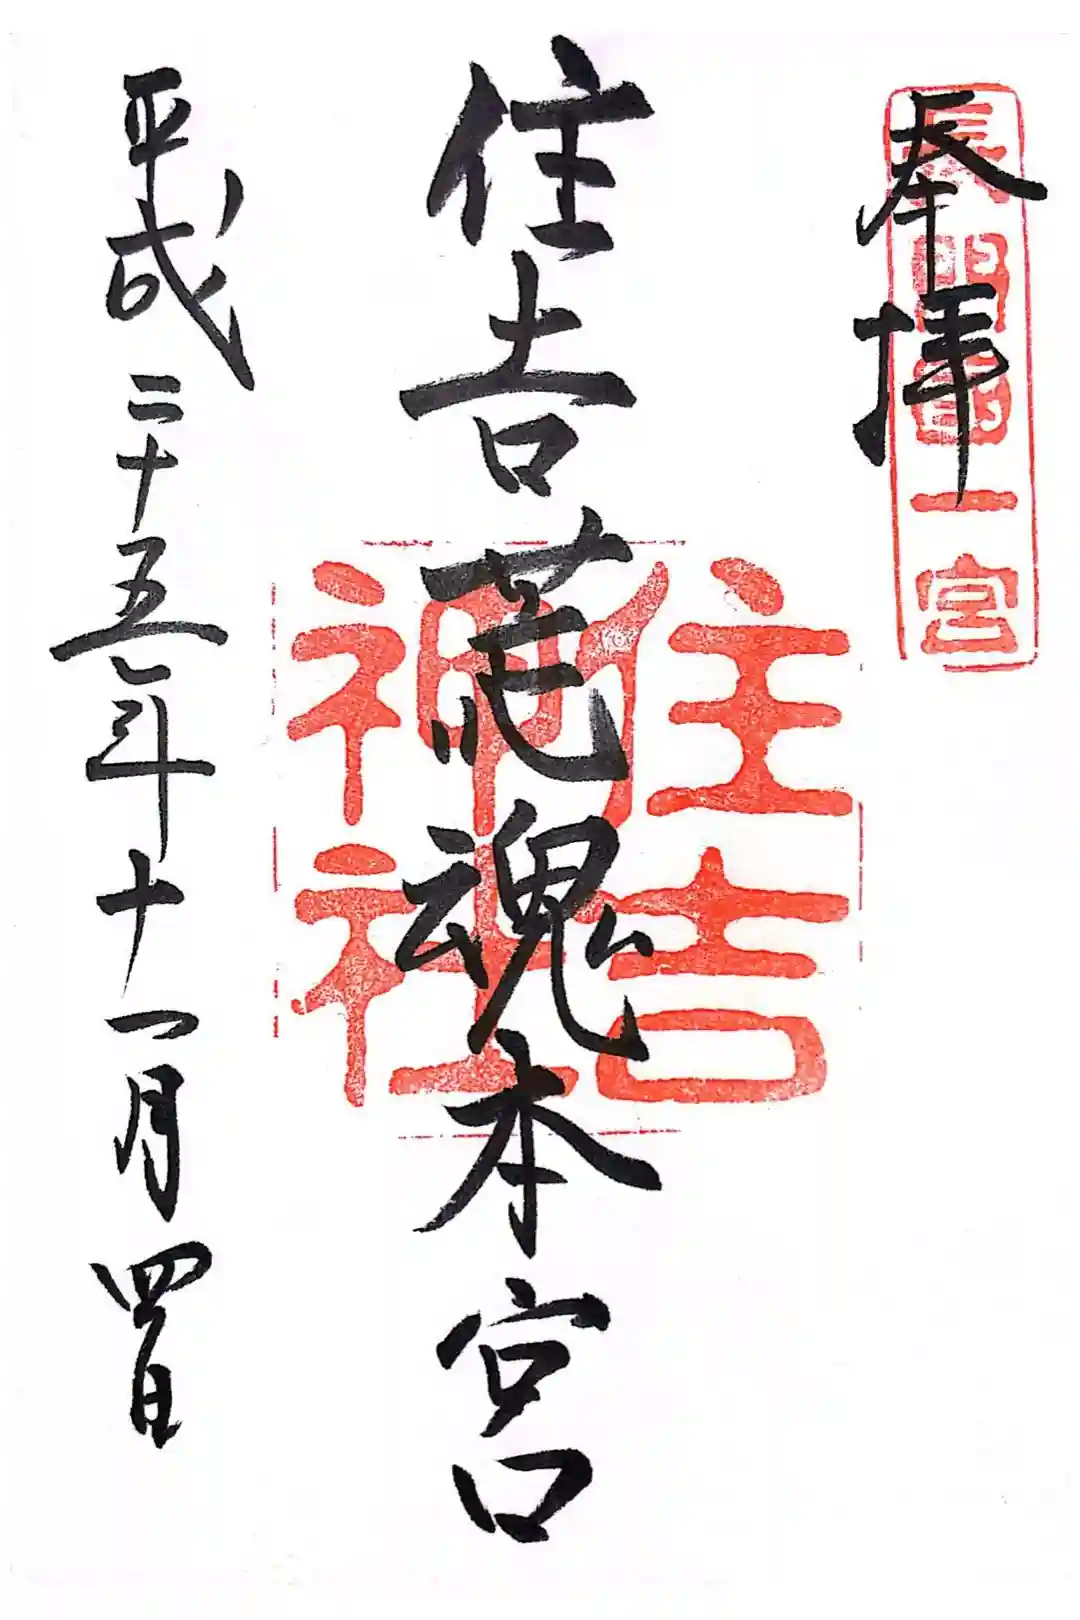 奉拝
長門國一宮
住吉荒魂本宮
住吉
神社
平成二十五年十一月四日